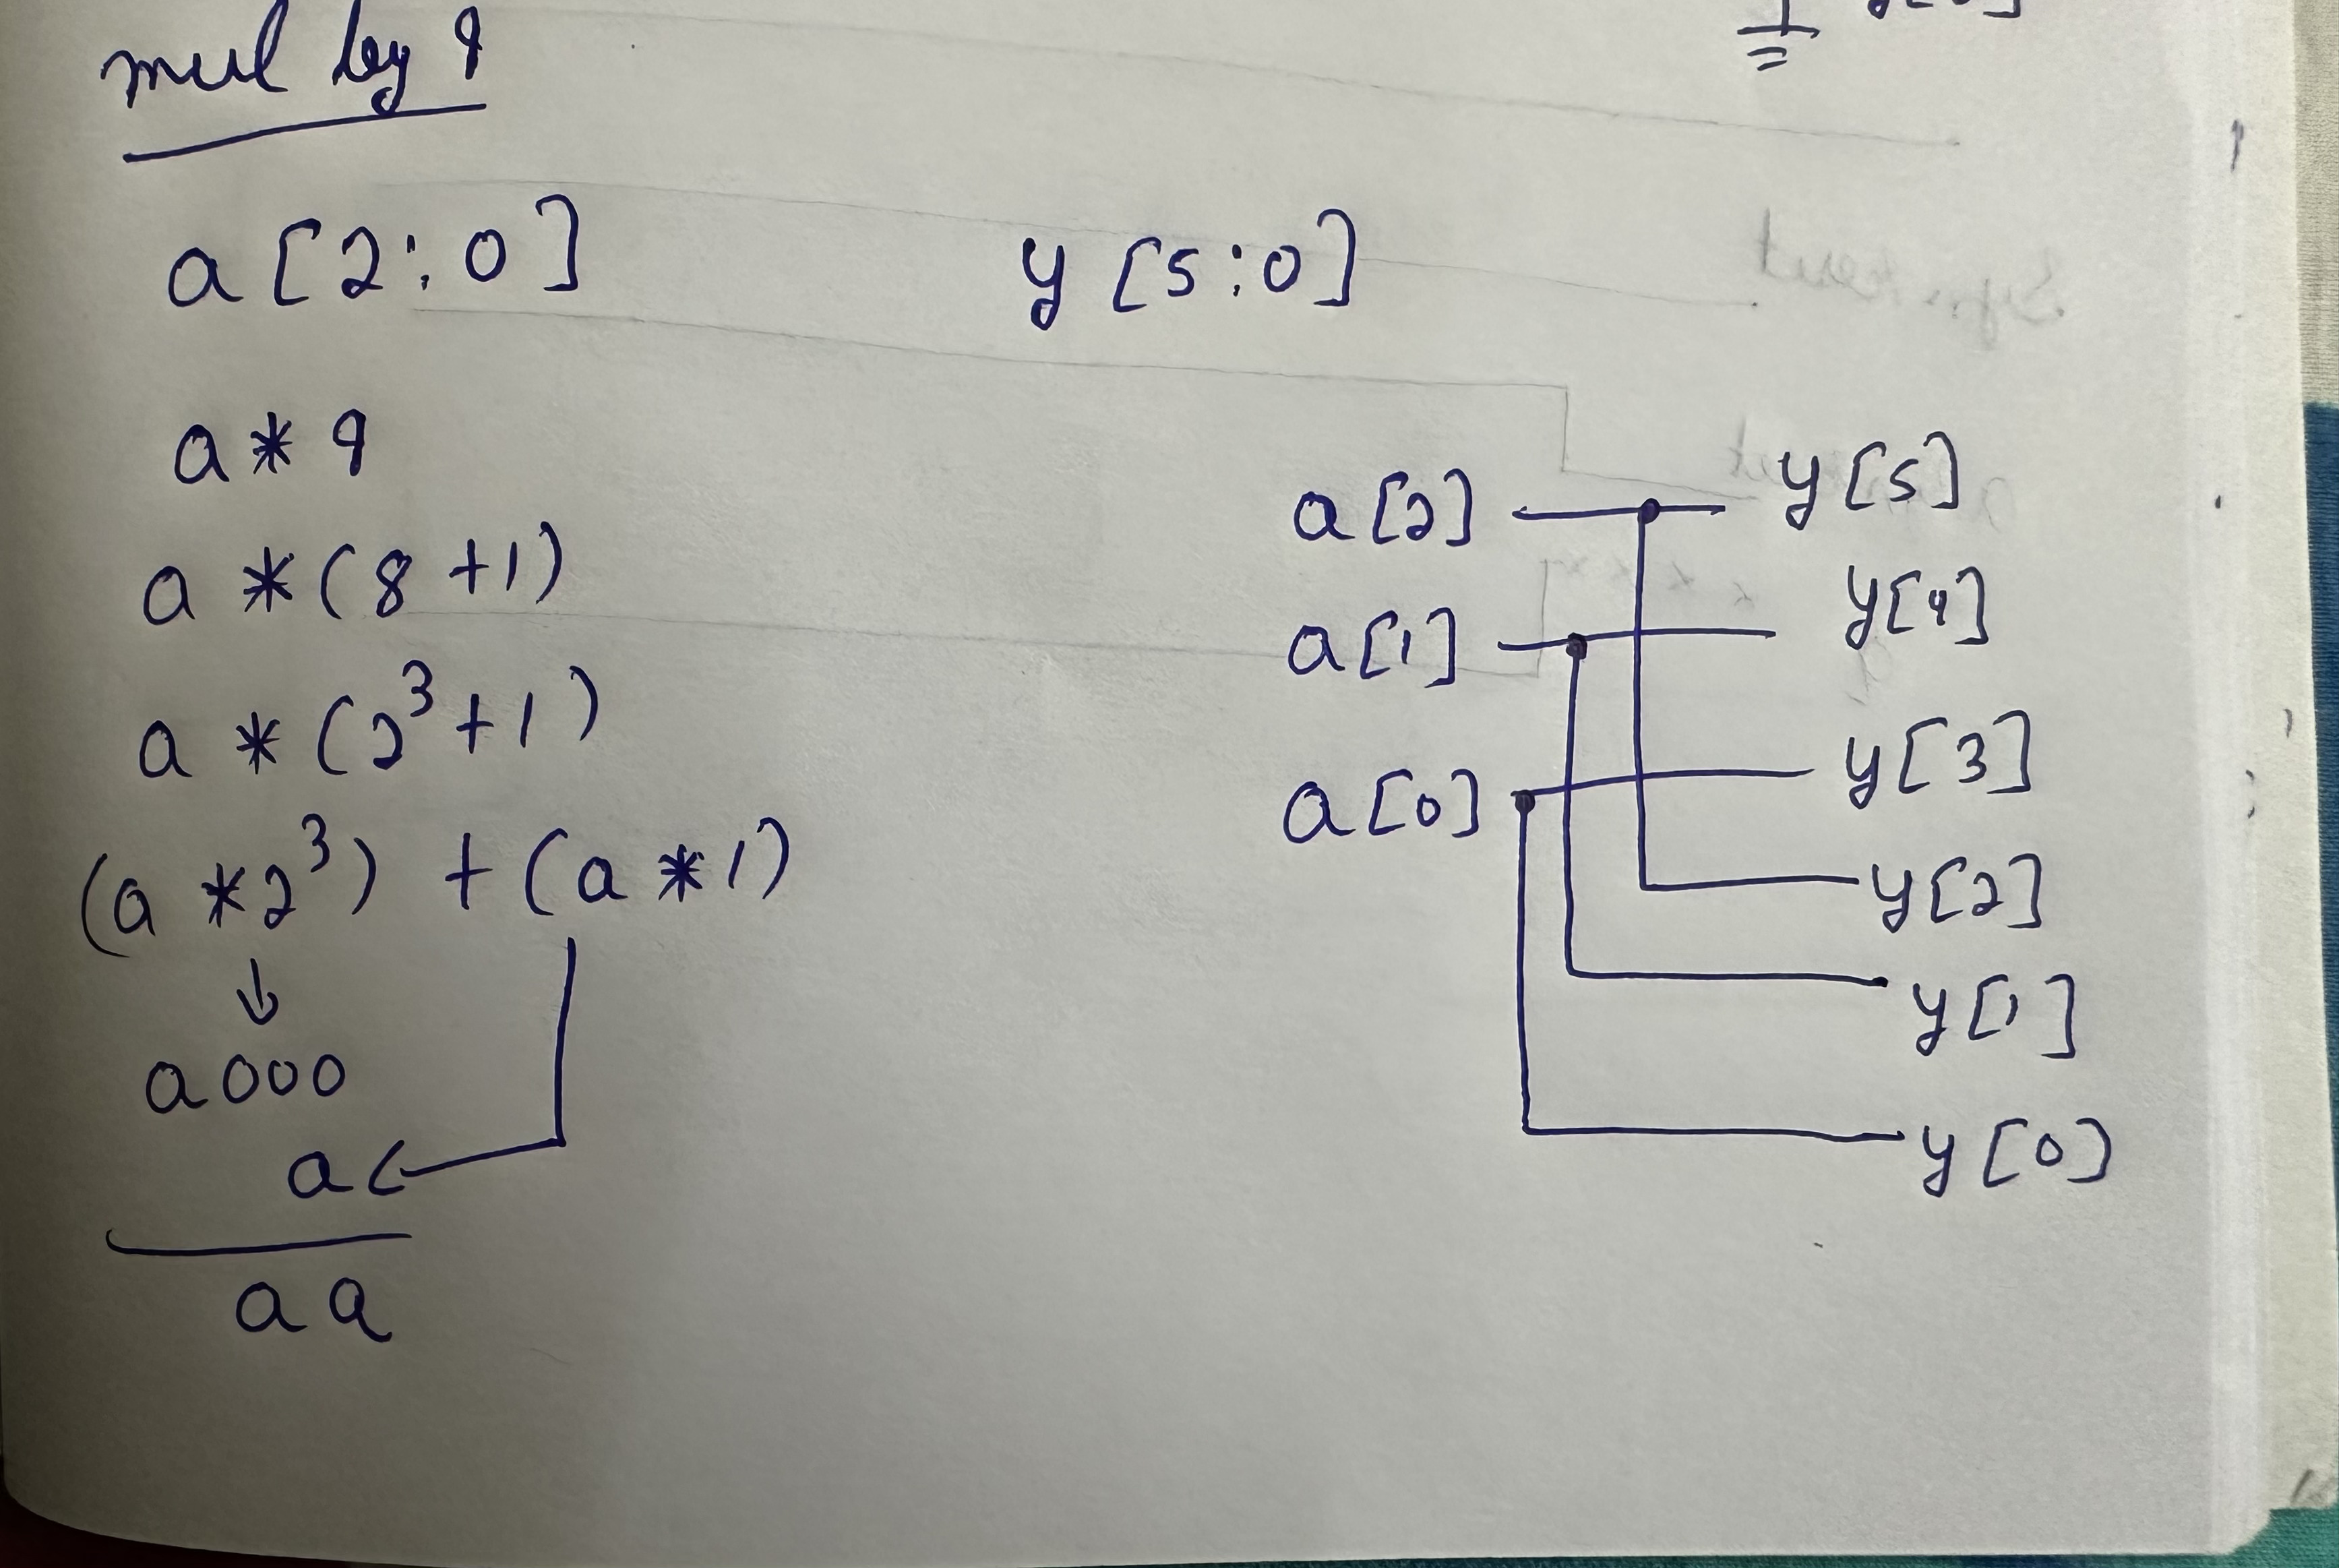 mul by 9
a[2:0] y[5:0]
a * 9
a * (8+1)
a * (2³+1)
(a * 2³) + (a * 1)
a000
a
aa
a[2] y[5]
a[1] y[4]
a[0] y[3]
y[2]
y[1]
y[0]